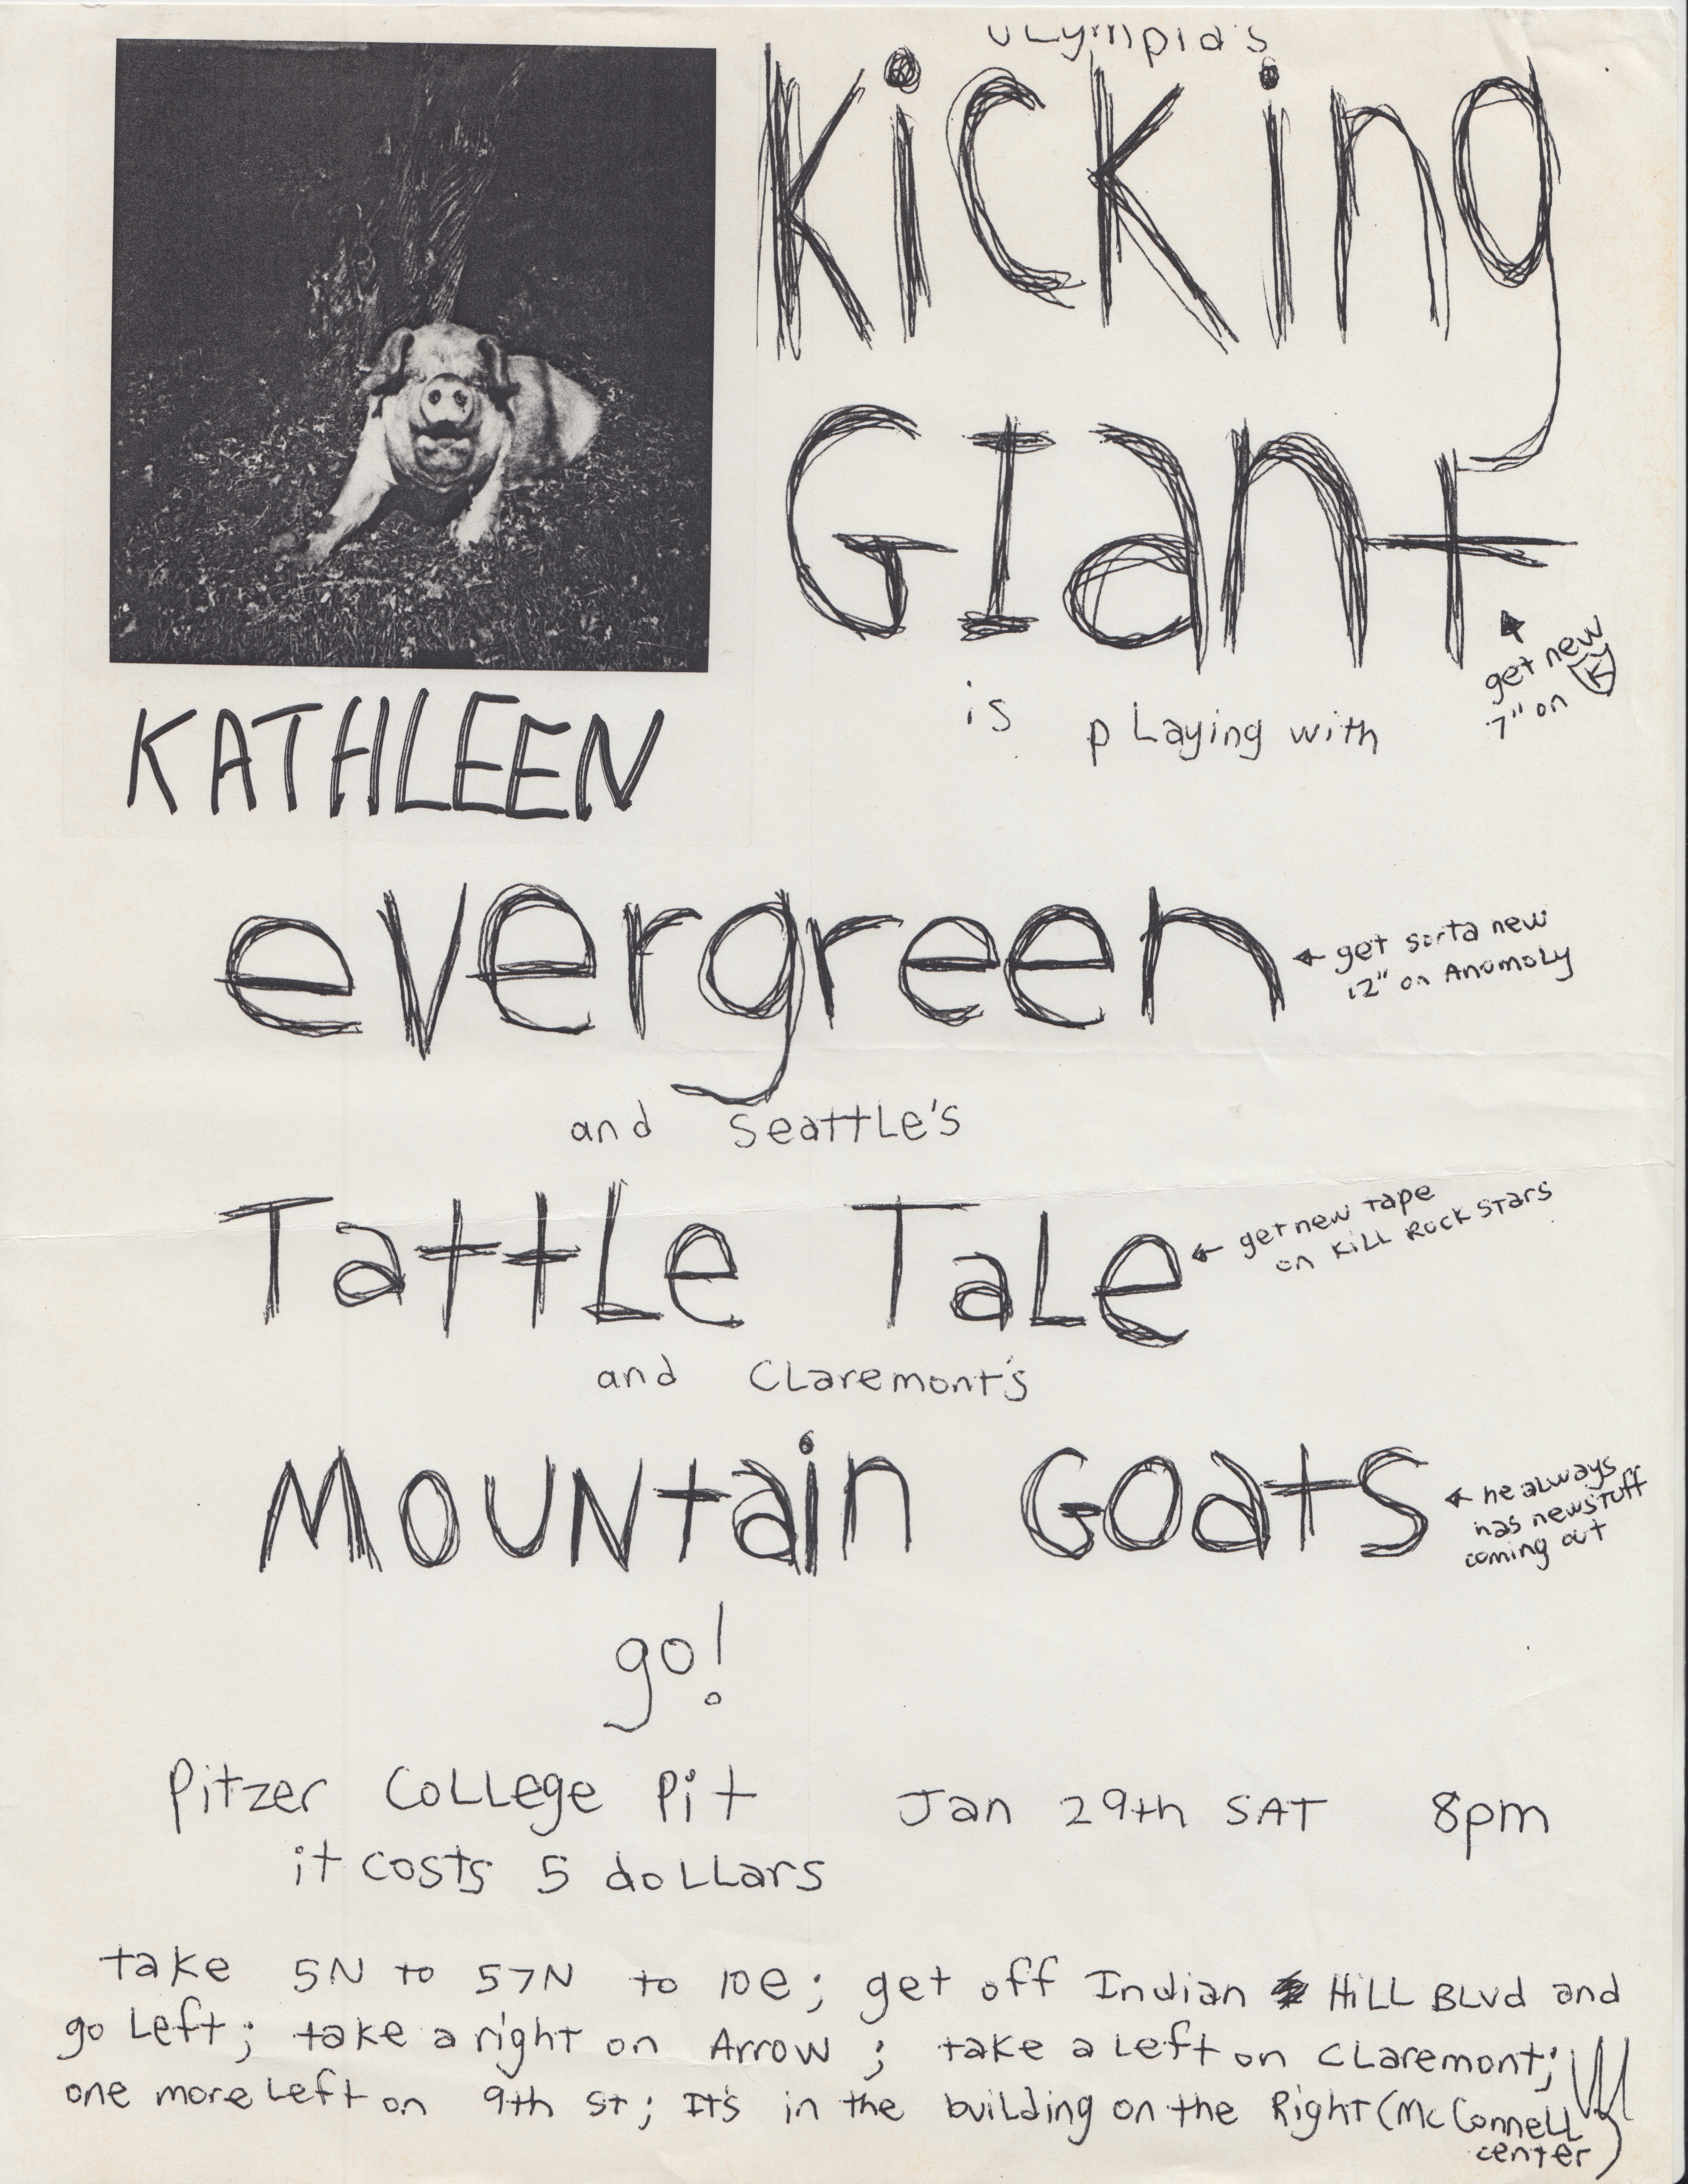 OLympia's
Kicking
GIant
get new
7" on K
is pLaying with
KATHLEEN
evergreen
get sorta new
12" on AnomoLy
and SeattLe's
TattLe TaLe
get new tape
on KiLL Rock Stars
and CLaremont's
MOUNtain Goats
he always
has new stuff
coming out
go!
Pitzer CoLLege Pit Jan 29th SAT 8pm
it costs 5 doLLars
take 5N to 57N to 10e; get off Indian HiLL BLvd and
go Left; take a right on Arrow; take a Left on CLaremont;
one more Left on 9th St; It's in the building on the Right (McConneLL
center)